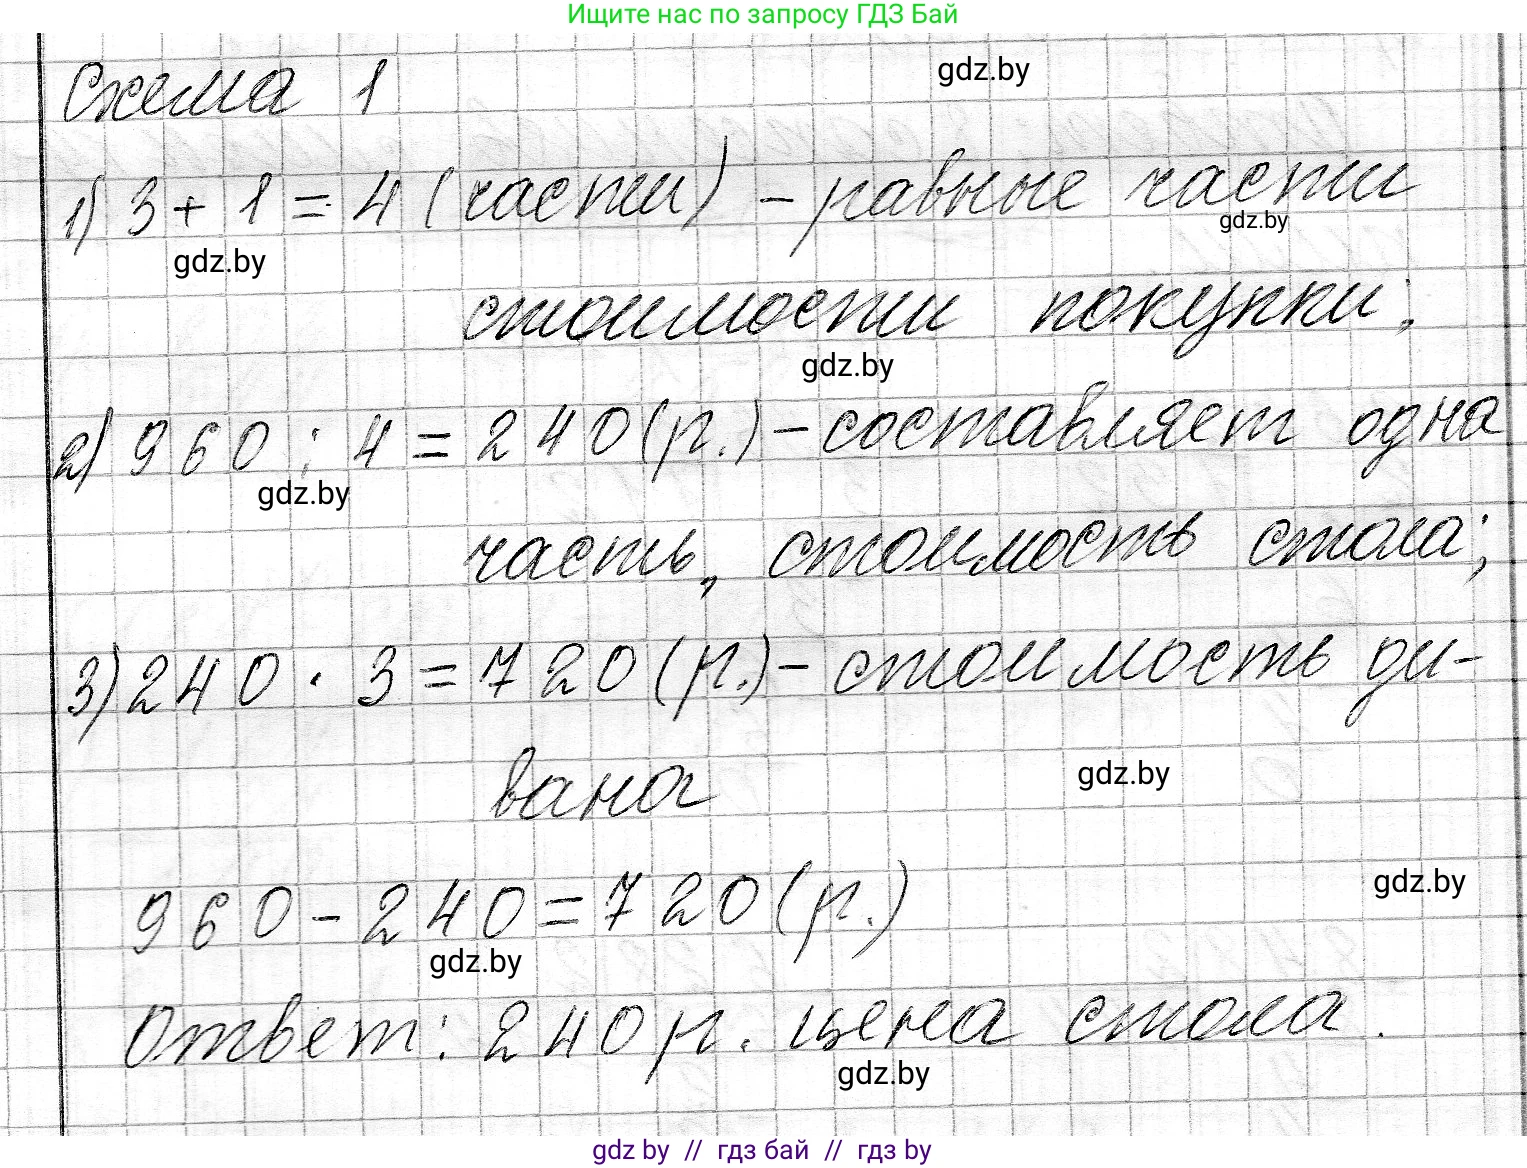 Ищите нас по запросу ГДЗ Бай
Схема 1
gdz.by
1) 3 + 1 = 4 (части) - равные части
gdz.by
gdz.by
стоимости покупки;
gdz.by
2) 960 : 4 = 240 (р.) - составляет одна
gdz.by
часть, стоимость стола;
3) 240 · 3 = 720 (р.) - стоимость ди-
вана
gdz.by
960 - 240 = 720 (р.)
gdz.by
gdz.by
Ответ: 240 р. цена стола.
gdz.by
gdz by // гдз бай // гдз by